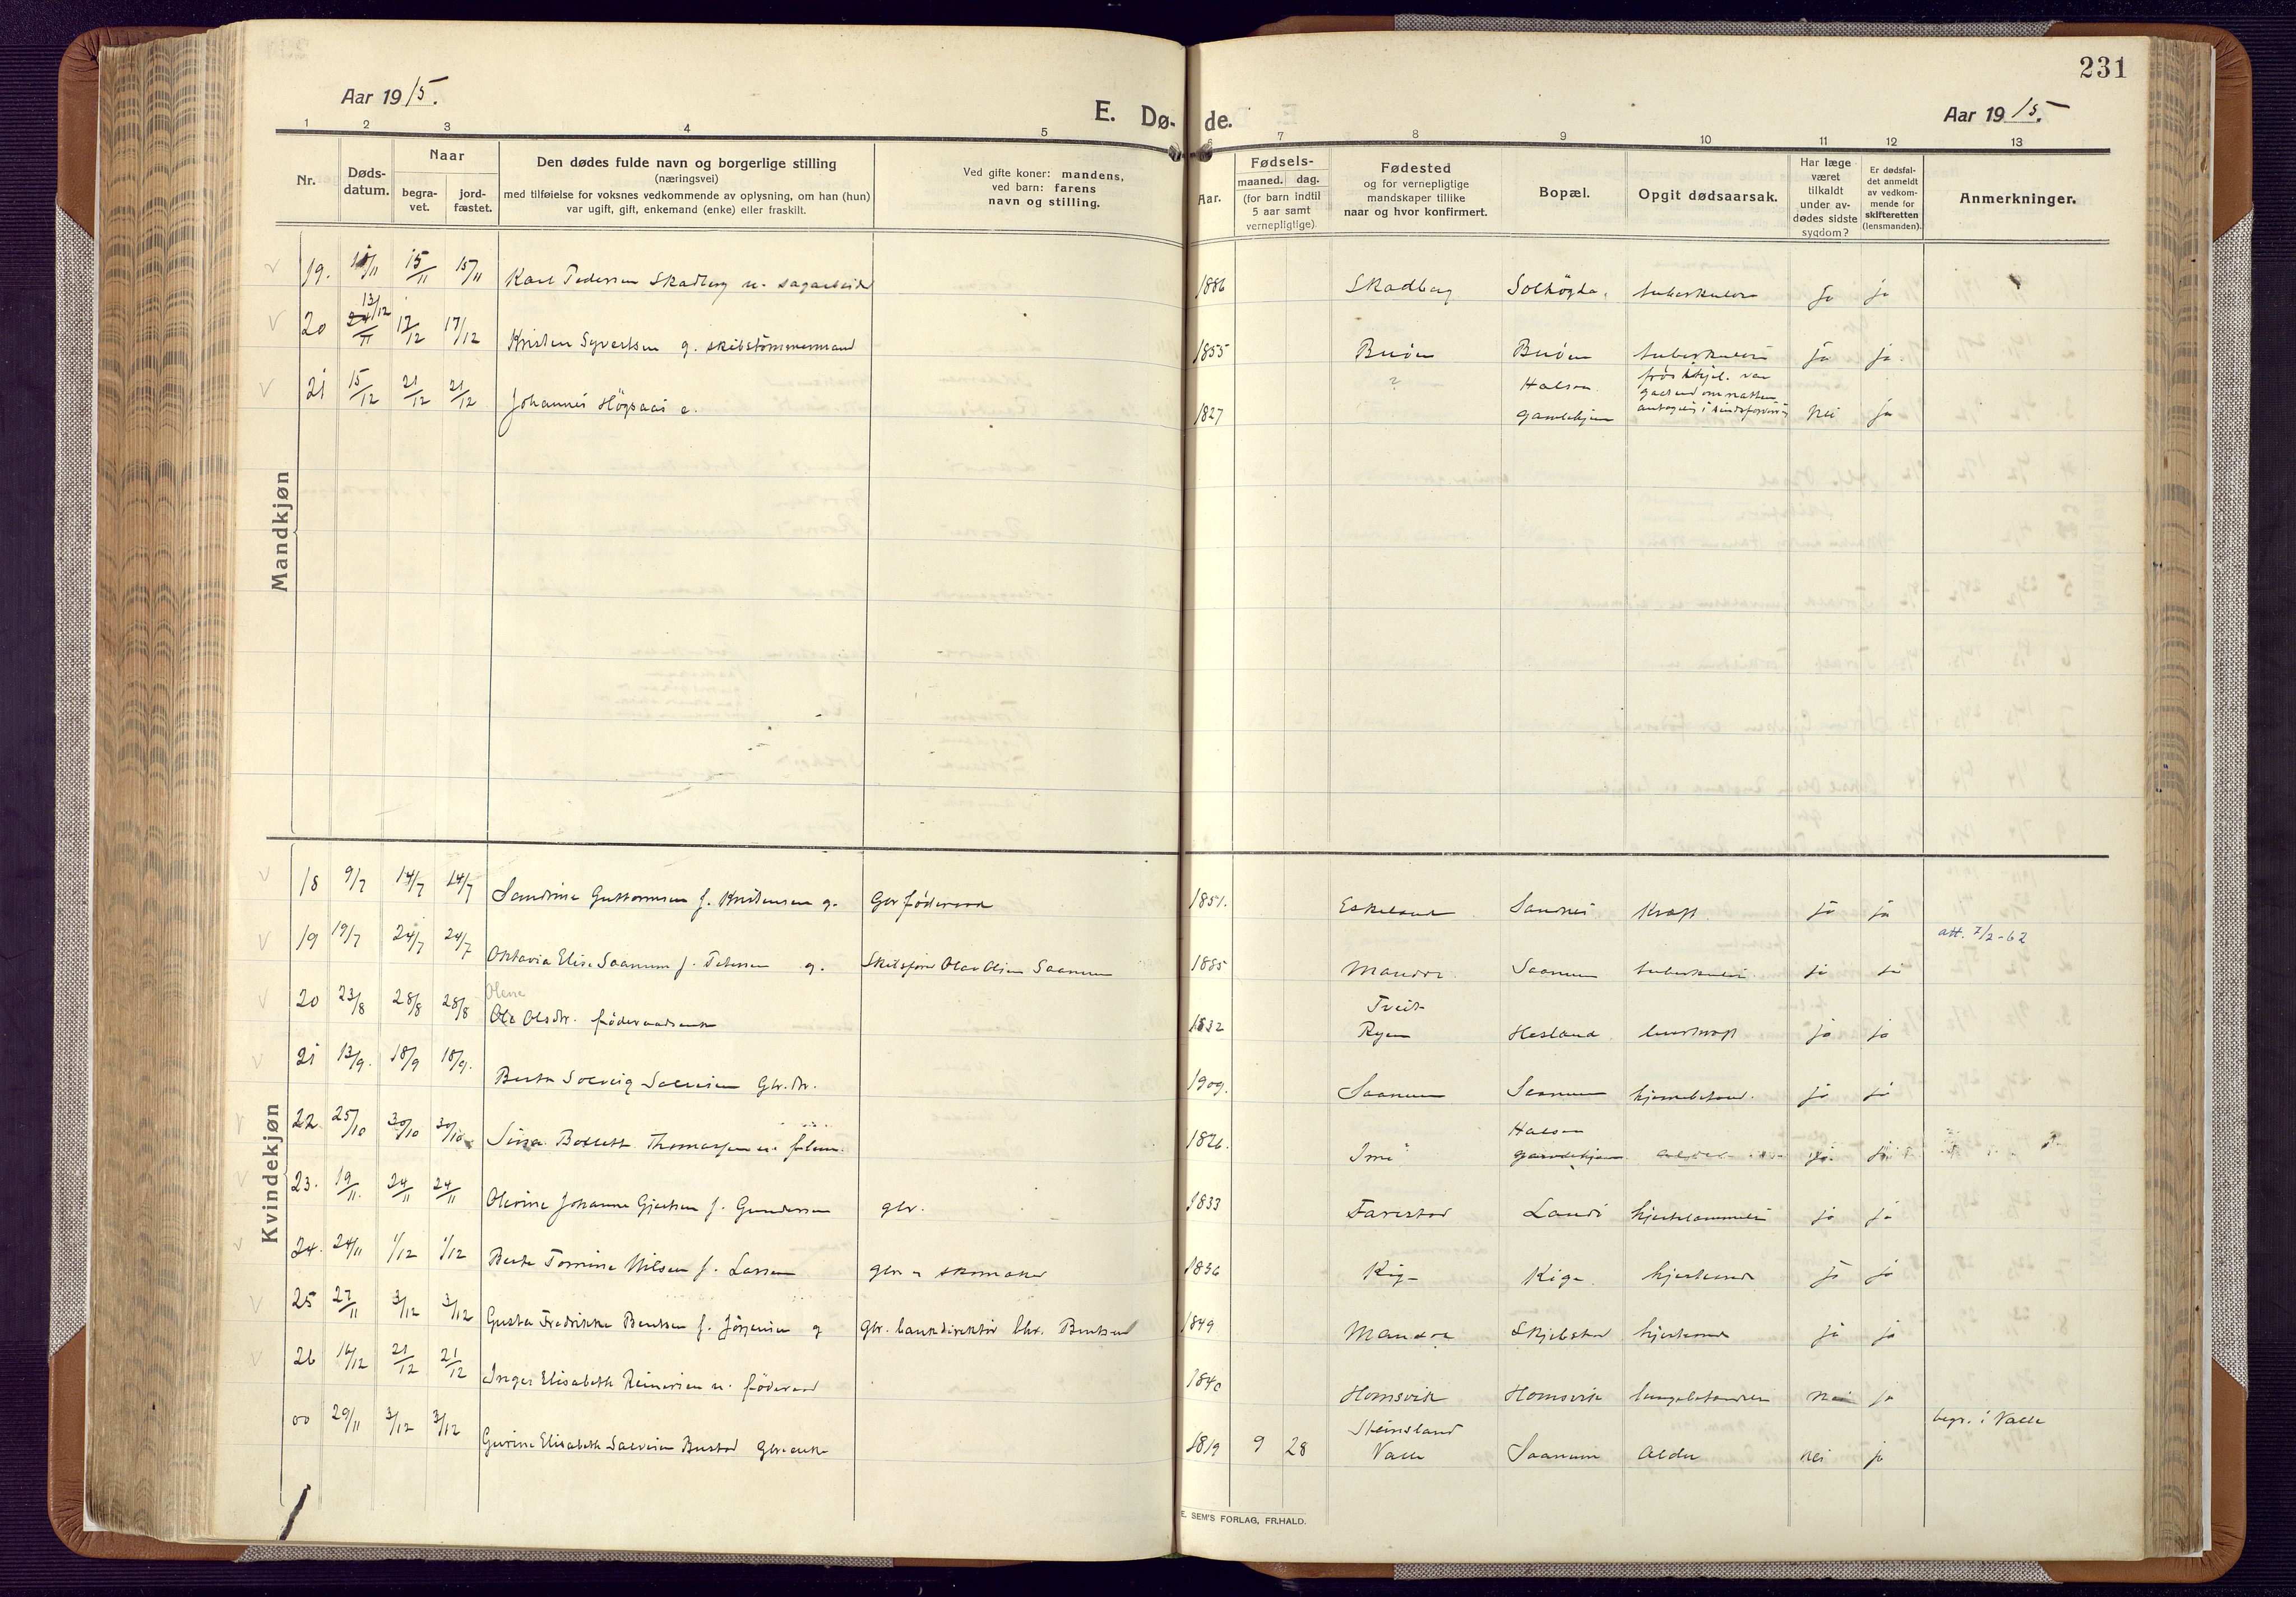 231
Aar 1915.
E. Dø- de.
Aar 1915.
1 2 3 4 5 6 7 8 9 10 11 12 13
Nr.
Døds-
datum.
Naar
begra-
vet.
jord-
fæstet.
Den dødes fulde navn og borgerlige stilling
(næringsvei)
med tilføielse for voksnes vedkommende av oplysning, om han (hun)
var ugift, gift, enkemand (enke) eller fraskilt.
Ved gifte koner: mandens,
ved barn: farens
navn og stilling.
Aar.
Fødsels-
maaned. dag.
(for barn indtil
5 aar samt
vernepligtige)
Fødested
og for vernepligtige
mandskaper tillike
naar og hvor konfirmert.
Bopæl.
Opgit dødsaarsak.
Har læge
været
tilkaldt
under av-
dødes sidste
sygdom?
Er dødsfal-
det anmeldt
av vedkom-
mende for
skifteretten
(lensmanden).
Anmerkninger.
Mandkjøn
19. 15/11 15/11 Karl Pedersen Skadberg u. sagarbeider 1886 Skadberg Solhögda tuberkulose ja ja
20 13/12 17/12 17/12 Kristen Syvertsen g. skibstømmermand 1855 Buöen Buöen tuberkulose ja ja
21 15/12 21/12 21/12 Johannes Högsaas e. 1827 ? Halsen gamlehjem frös ihjel. var gaaet ud om natten antagelig i sindsforvirring Nei ja
Kvindekjøn
18 9/7 14/7 14/7 Sandrine Guttormsen f. Kristensen g. Gbr föderaad 1851. Eskeland Sandnes Kræft ja ja
19 19/7 24/7 24/7 Oktavia Elise Saanum f. Pedersen g. Skibsförer Olav Olsen Saanum 1885 Mandal Saanum tuberkulose ja ja att. 7/2-62
20 23/8 28/8 28/8 Olene Olsdtr. föderaadsenke 1832 Tveit Ryen Hesland leverkræft ja ja
21 13/9. 18/9 18/9. Berta Solveig Salvesen Gbr. dtr. 1909. Saanum Saanum hjernebetænd. ja ja
22 25/10 30/10 30/10 Thomassen u. 1826. Ime Halsen gamlehjem ja
23. 19/11. 24/11 24/11 Olevine Johanne Gjertsen f. Gundersen gbr. 1833 Farestad Landö hjertelammelse ja ja
24. 24/11 1/12 1/12 Berte Tomine Nilsen f. Larsen gbr. & skomaker 1836 Kige Kige. hjerteonde ja ja
25 27/11 3/12 3/12 Gusta Fredrikke Bentsen f. Jörgensen g Gbr. bankdirektör Chr. Bentsen 1849 Mandal Skjebstad hjerteonde ja ja
26 16/12 21/12 21/12 Inger Elisabeth Reinersen u. föderaad 1840 Homsvik Homsvik lungebetændelse nei ja
00 29/11 3/12 3/12 Gurine Elisabeth Salvesen Bustad Gbr. enke 1819 9 28 Steinsland Valle Saanum Alder nei ja begr. i Valle
E. SEM'S FORLAG, FR.HALD.